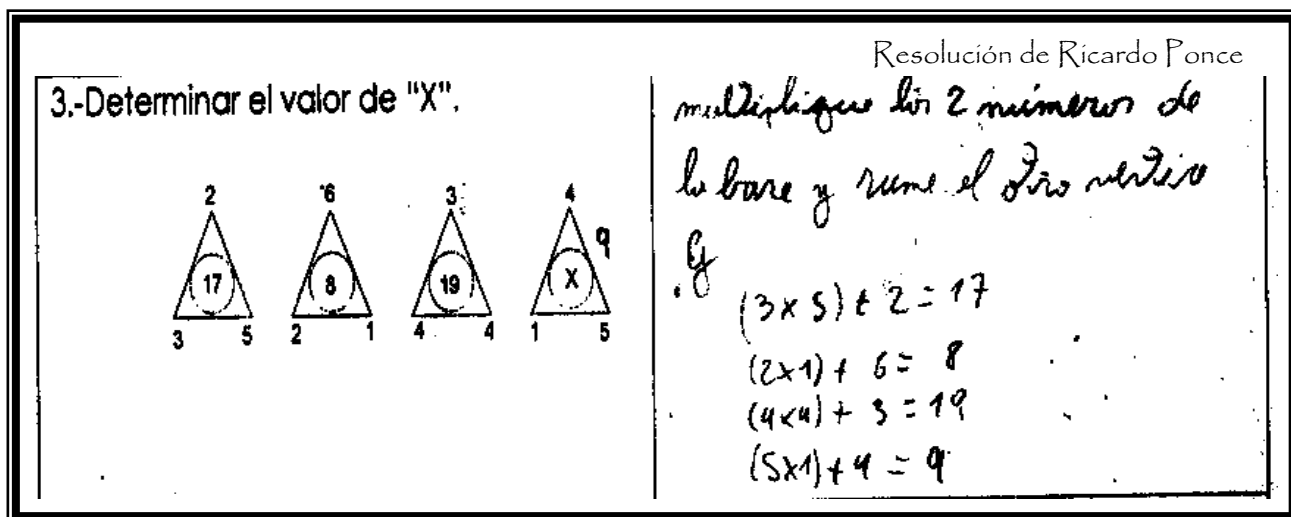 Resolución de Ricardo Ponce
3.-Determinar el valor de "X".
2 6 3 4
9
17 8 19 X
3 5 2 1 4 4 1 5
multiplique los 2 números de
la base y sume el otro vertice
Ej
(3x5)+2=17
(2x1)+6=8
(4x4)+3=19
(5x1)+4=9